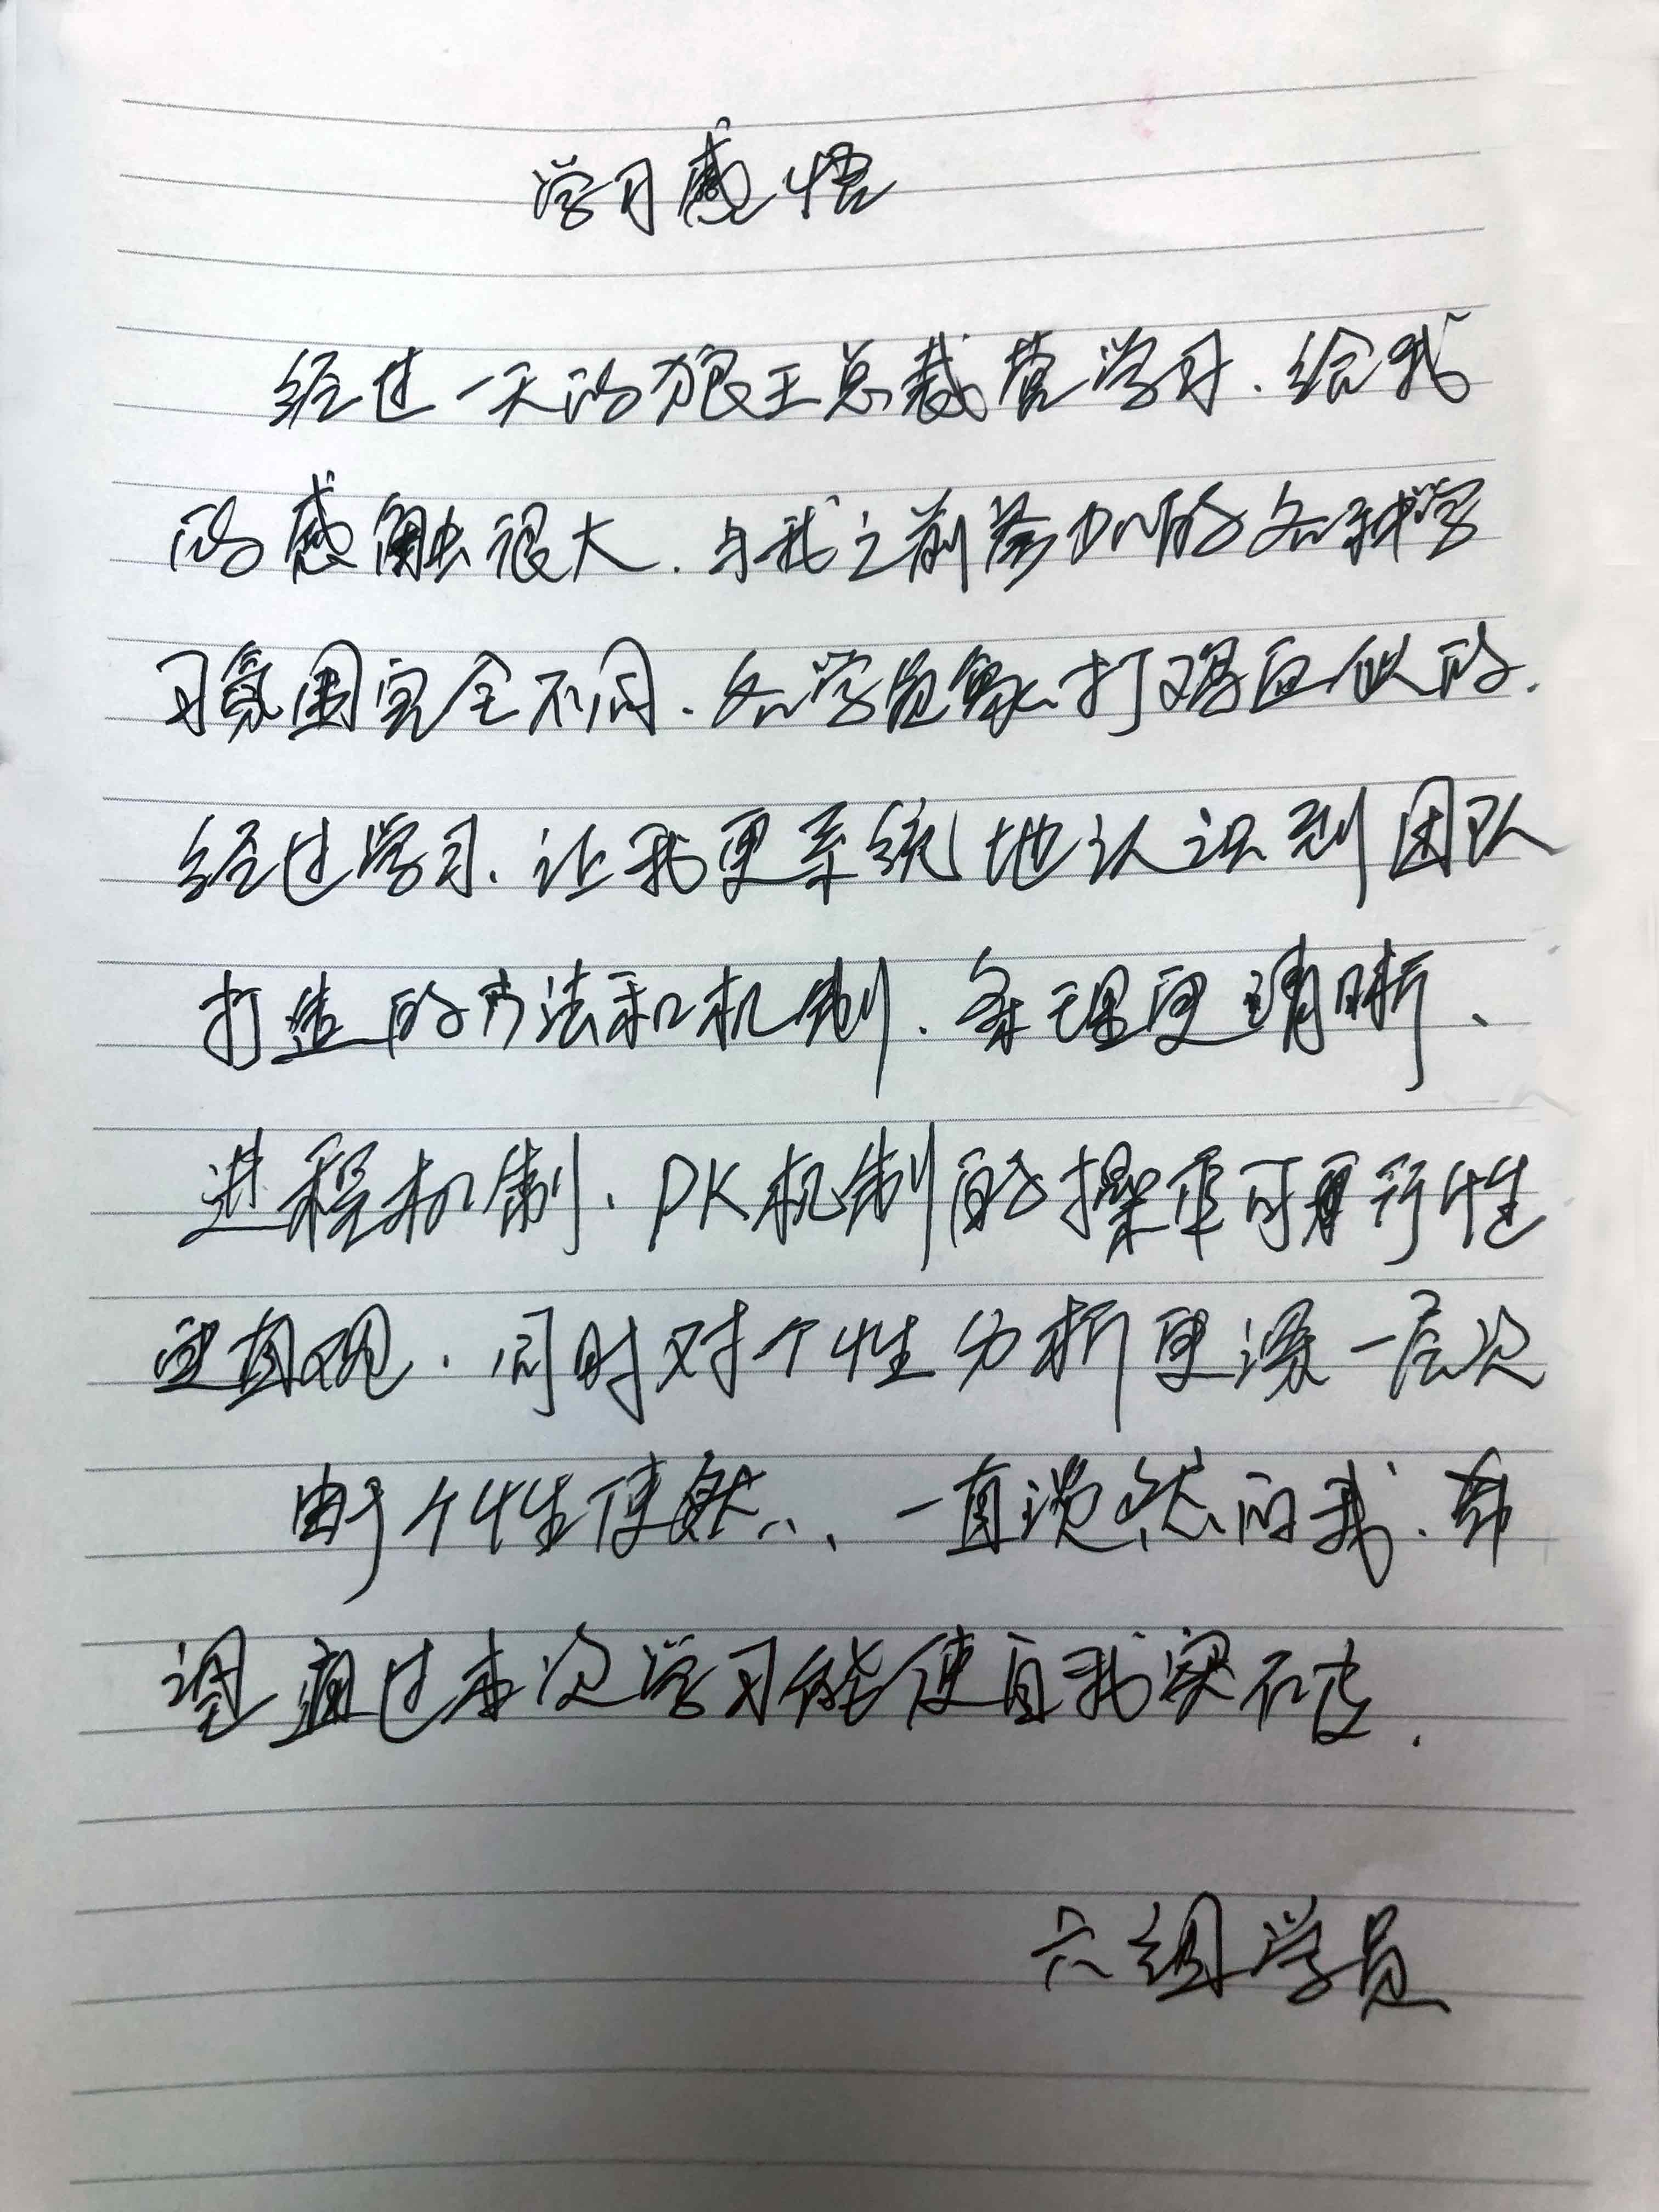 学习感悟
经过一天的狼王总裁营学习.给我
的感触很大.与我之前参加的各种学
习氛围完全不同.各学员像打鸡血似的.
经过学习.让我更系统地认识到团队
打造的方法和机制.条理更清晰、
进程机制.PK机制的操作可行性
更直观.同时对个性分析更深一层次
由于个性使然、一直淡然的我.希
望通过本次学习能使自我突破.
六组学员